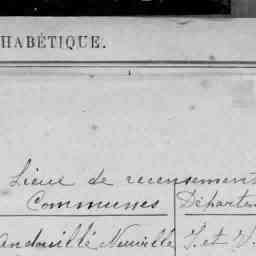 HABÉTIQUE.
Lieu de recensement
Communes Départem
Andouillé Neuville I. et V.